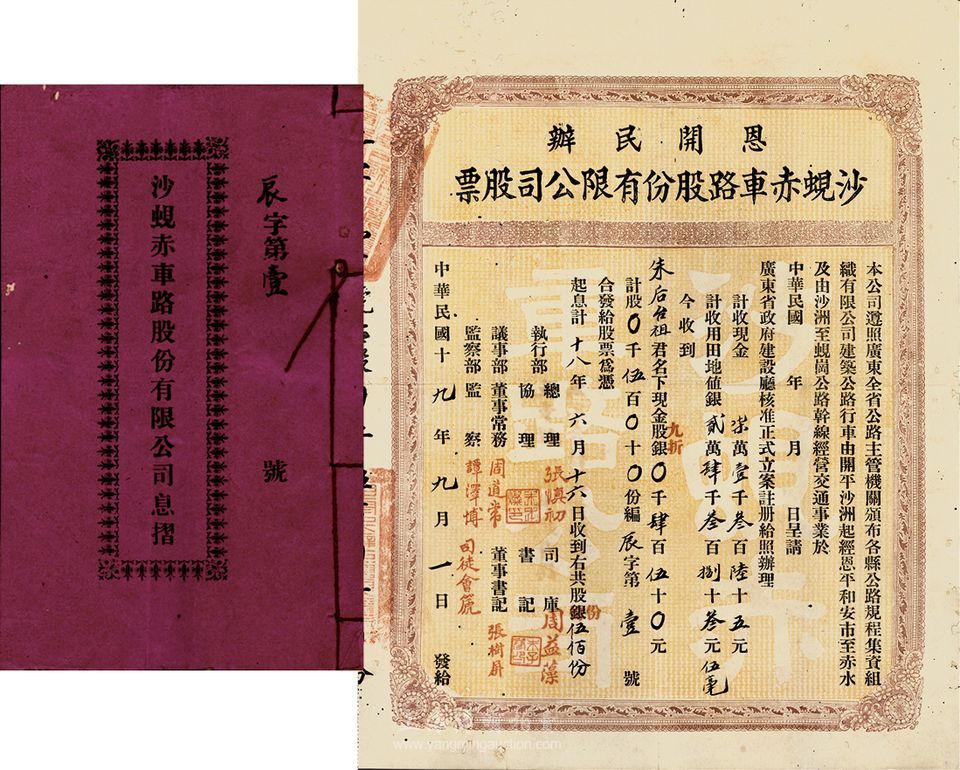 辰字第壹 號
沙蜆赤車路股份有限公司息摺
恩開民辦
沙蜆赤車路股份有限公司股票
本公司遵照廣東全省公路主管機關頒布各縣公路規程集資組
織有限公司建築公路行車由開平沙洲起經恩平和安市至赤水
及由沙洲至蜆崗公路幹線經營交通事業於
中華民國 年 月 日呈請
廣東省政府建設廳核准正式立案註册給照辦理
計收現金 柒萬壹千叁百陸十五元
計收用田地値銀貳萬肆千叁百捌十叁元伍毫
今收到
朱后台祖君名下現金股銀0千肆百伍十0元
九折
計股0千伍百0十0份編辰字第壹號
合發給股票爲憑
起息計十八年六月十六日收到右共股銀伍佰份
份
執行部 總理 張澳初 司庫 周益藻
協理 書記
議事部 董事常務 周道常 董事書記 張樹屏
監察部 監察 譚澤博 司徒會篪
中華民國十九年九月一日發給
www.yangmingauction.com